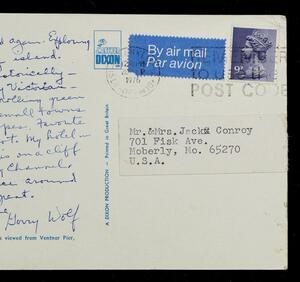 d again. Exploring
island.
storically –
Victorian –
rolling green
small towns
pes. Favorite
t. My hotel –
is on a cliff
Channel,
around
great.
Gerry Wolf
s viewed from Ventnor Pier,
DIXON
A DIXON PRODUCTION - Printed in Great Britain
By air mail
Par avion
1976
POST CODE
Mr.&Mrs.Jack Conroy
701 Fisk Ave.
Moberly, Mo. 65270
U.S.A.